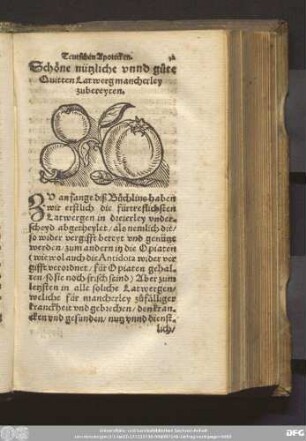 Teutschen Apotecken.
Schöne nützliche vnnd güte
Quitten Latwerg mancherley
zubereyten.
ZV anfangs diß Büchlins haben
wir erstlich die fürtreflichsten
Latwergen in dreierley vnder-
scheyd abgetheylet/ als nemlich die/
so wider vergifft bereyt vnd genützt
werden. zum andern in die Opiaten
(wie wol auch die Antidota wider ver
gifft verordnet/ für Opiaten gehal-
ten so sie noch frisch seind) Aber zum
letsten in alle soliche Latwergen/
weliche für mancherley züfälliger
kranckheit vnd gebrechen/ den kran-
cken vnd gesunden/ nutz vnnd dienst-
lich/
DFG